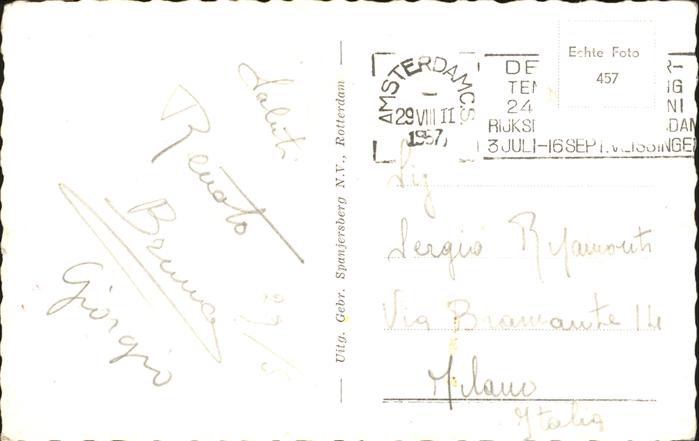 Saluti
Renato
Bruna
Giorgio
29/8
Uitg. Gebr. Spanjersberg N.V., Rotterdam
AMSTERDAM C.S.
29 VIII 11
1957
DE
TEN
24
RIJKS
3 JULI-16 SEPT. VLISSINGEN
Echte Foto
457
Sig
Sergio
Via Bramante 14
Milano
Italia